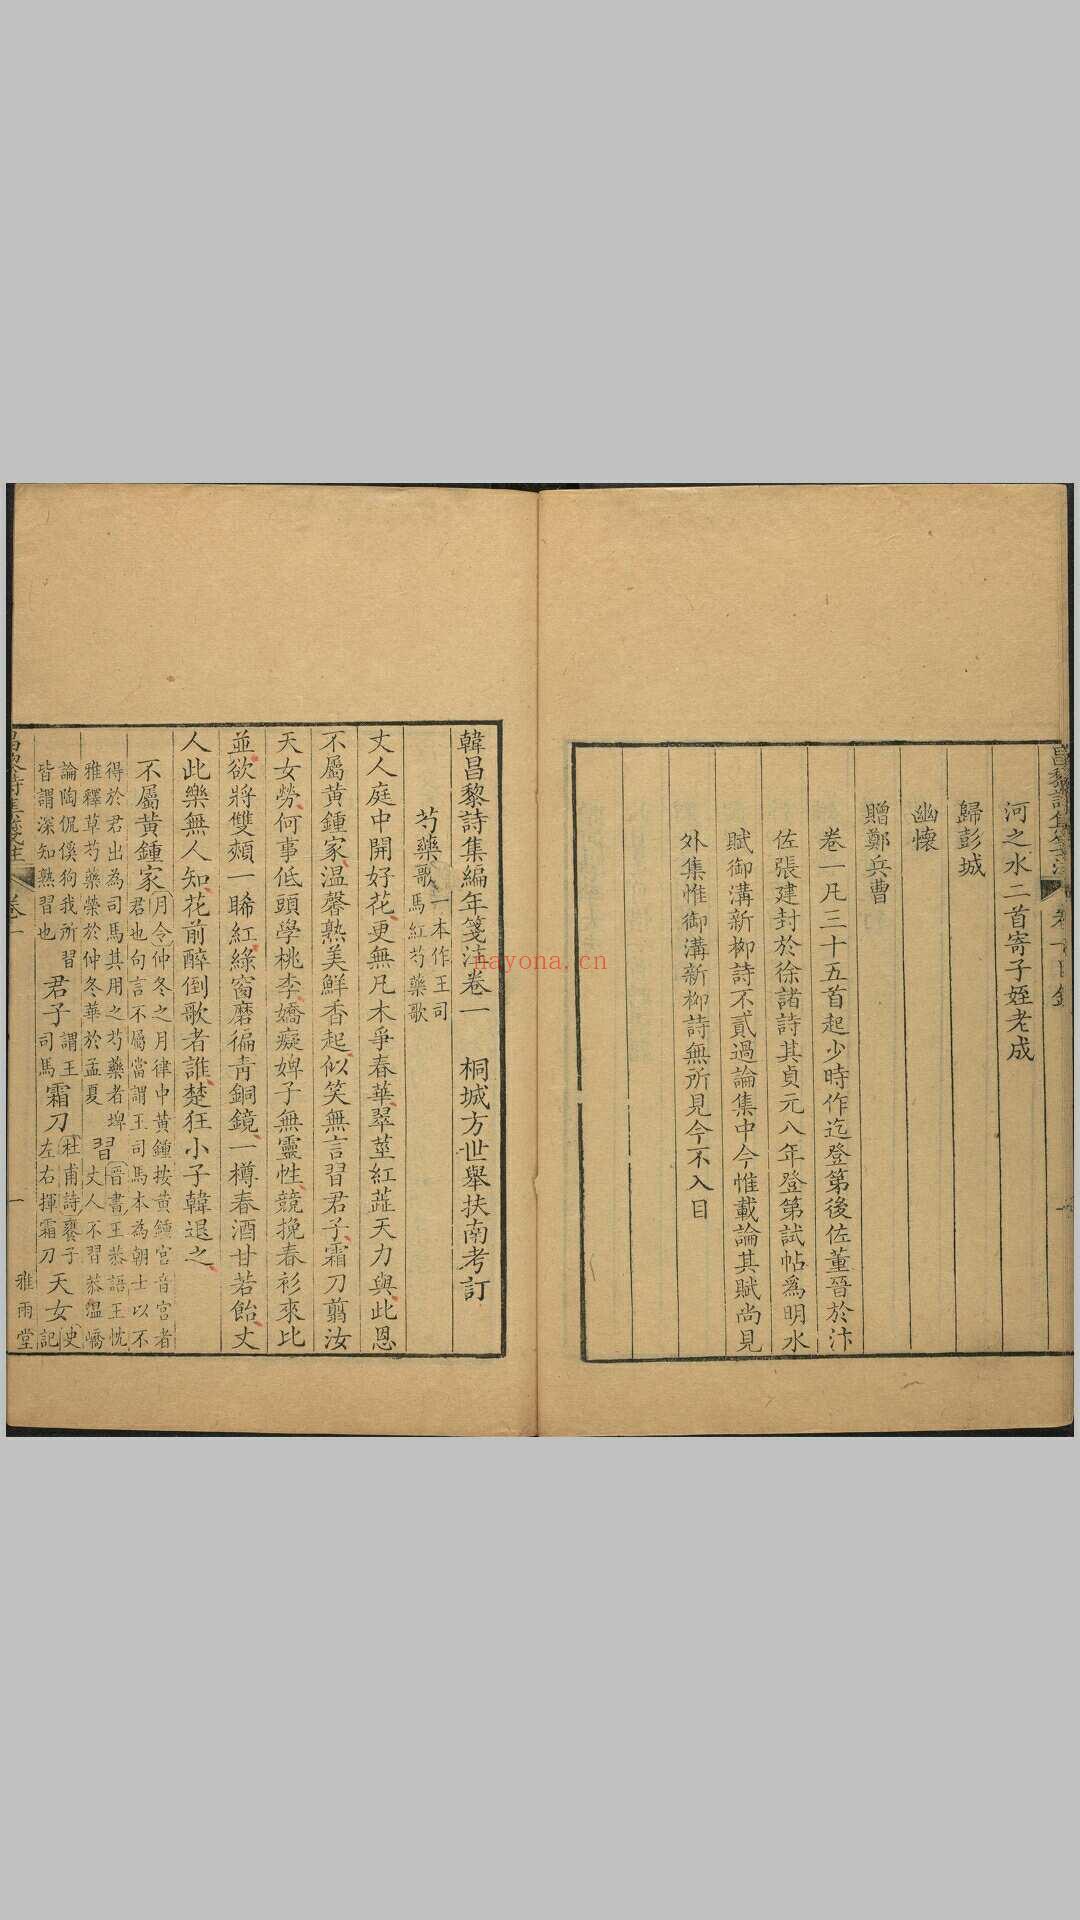 河之水二首寄子姪老成
歸彭城
幽懷
贈鄭兵曹
卷一凡三十五首起少時作迄登第後佐董晉於汴
佐張建封於徐諸詩其貞元八年登第試帖爲明水
賦御溝新柳詩不貳過論集中今惟載論其賦尚見
外集惟御溝新柳詩無所見今不入目
韓昌黎詩集編年箋注卷一 桐城方世舉扶南考訂
芍藥歌 一本作王司馬紅芍藥歌
丈人庭中開好花更無凡木爭春華翠莖紅蘂天力與此恩
不屬黃鍾家温馨熟美鮮香起似笑無言習君子霜刀翦汝
天女勞何事低頭學桃李嬌癡婢子無靈性競挽春衫來比
並欲將雙頰一睎紅綠窗磨徧青銅鏡一樽春酒甘若飴丈
人此樂無人知花前醉倒歌者誰楚狂小子韓退之
不屬黃鍾家 月令仲冬之月律中黃鍾按黃鍾宮音宮者
君也句言不屬當謂王司馬本為朝士以不
得於君出為司馬其用之芍藥者埤
雅釋草芍藥榮於仲冬華於孟夏
習 晉書王恭語王忱
丈人不習恭溫嶠
論陶侃傒狗我所習
皆謂深知熟習也
君子 謂王司馬
霜刀 杜甫詩饔子左右揮霜刀
天女 史記
雅雨堂
nayona.cn